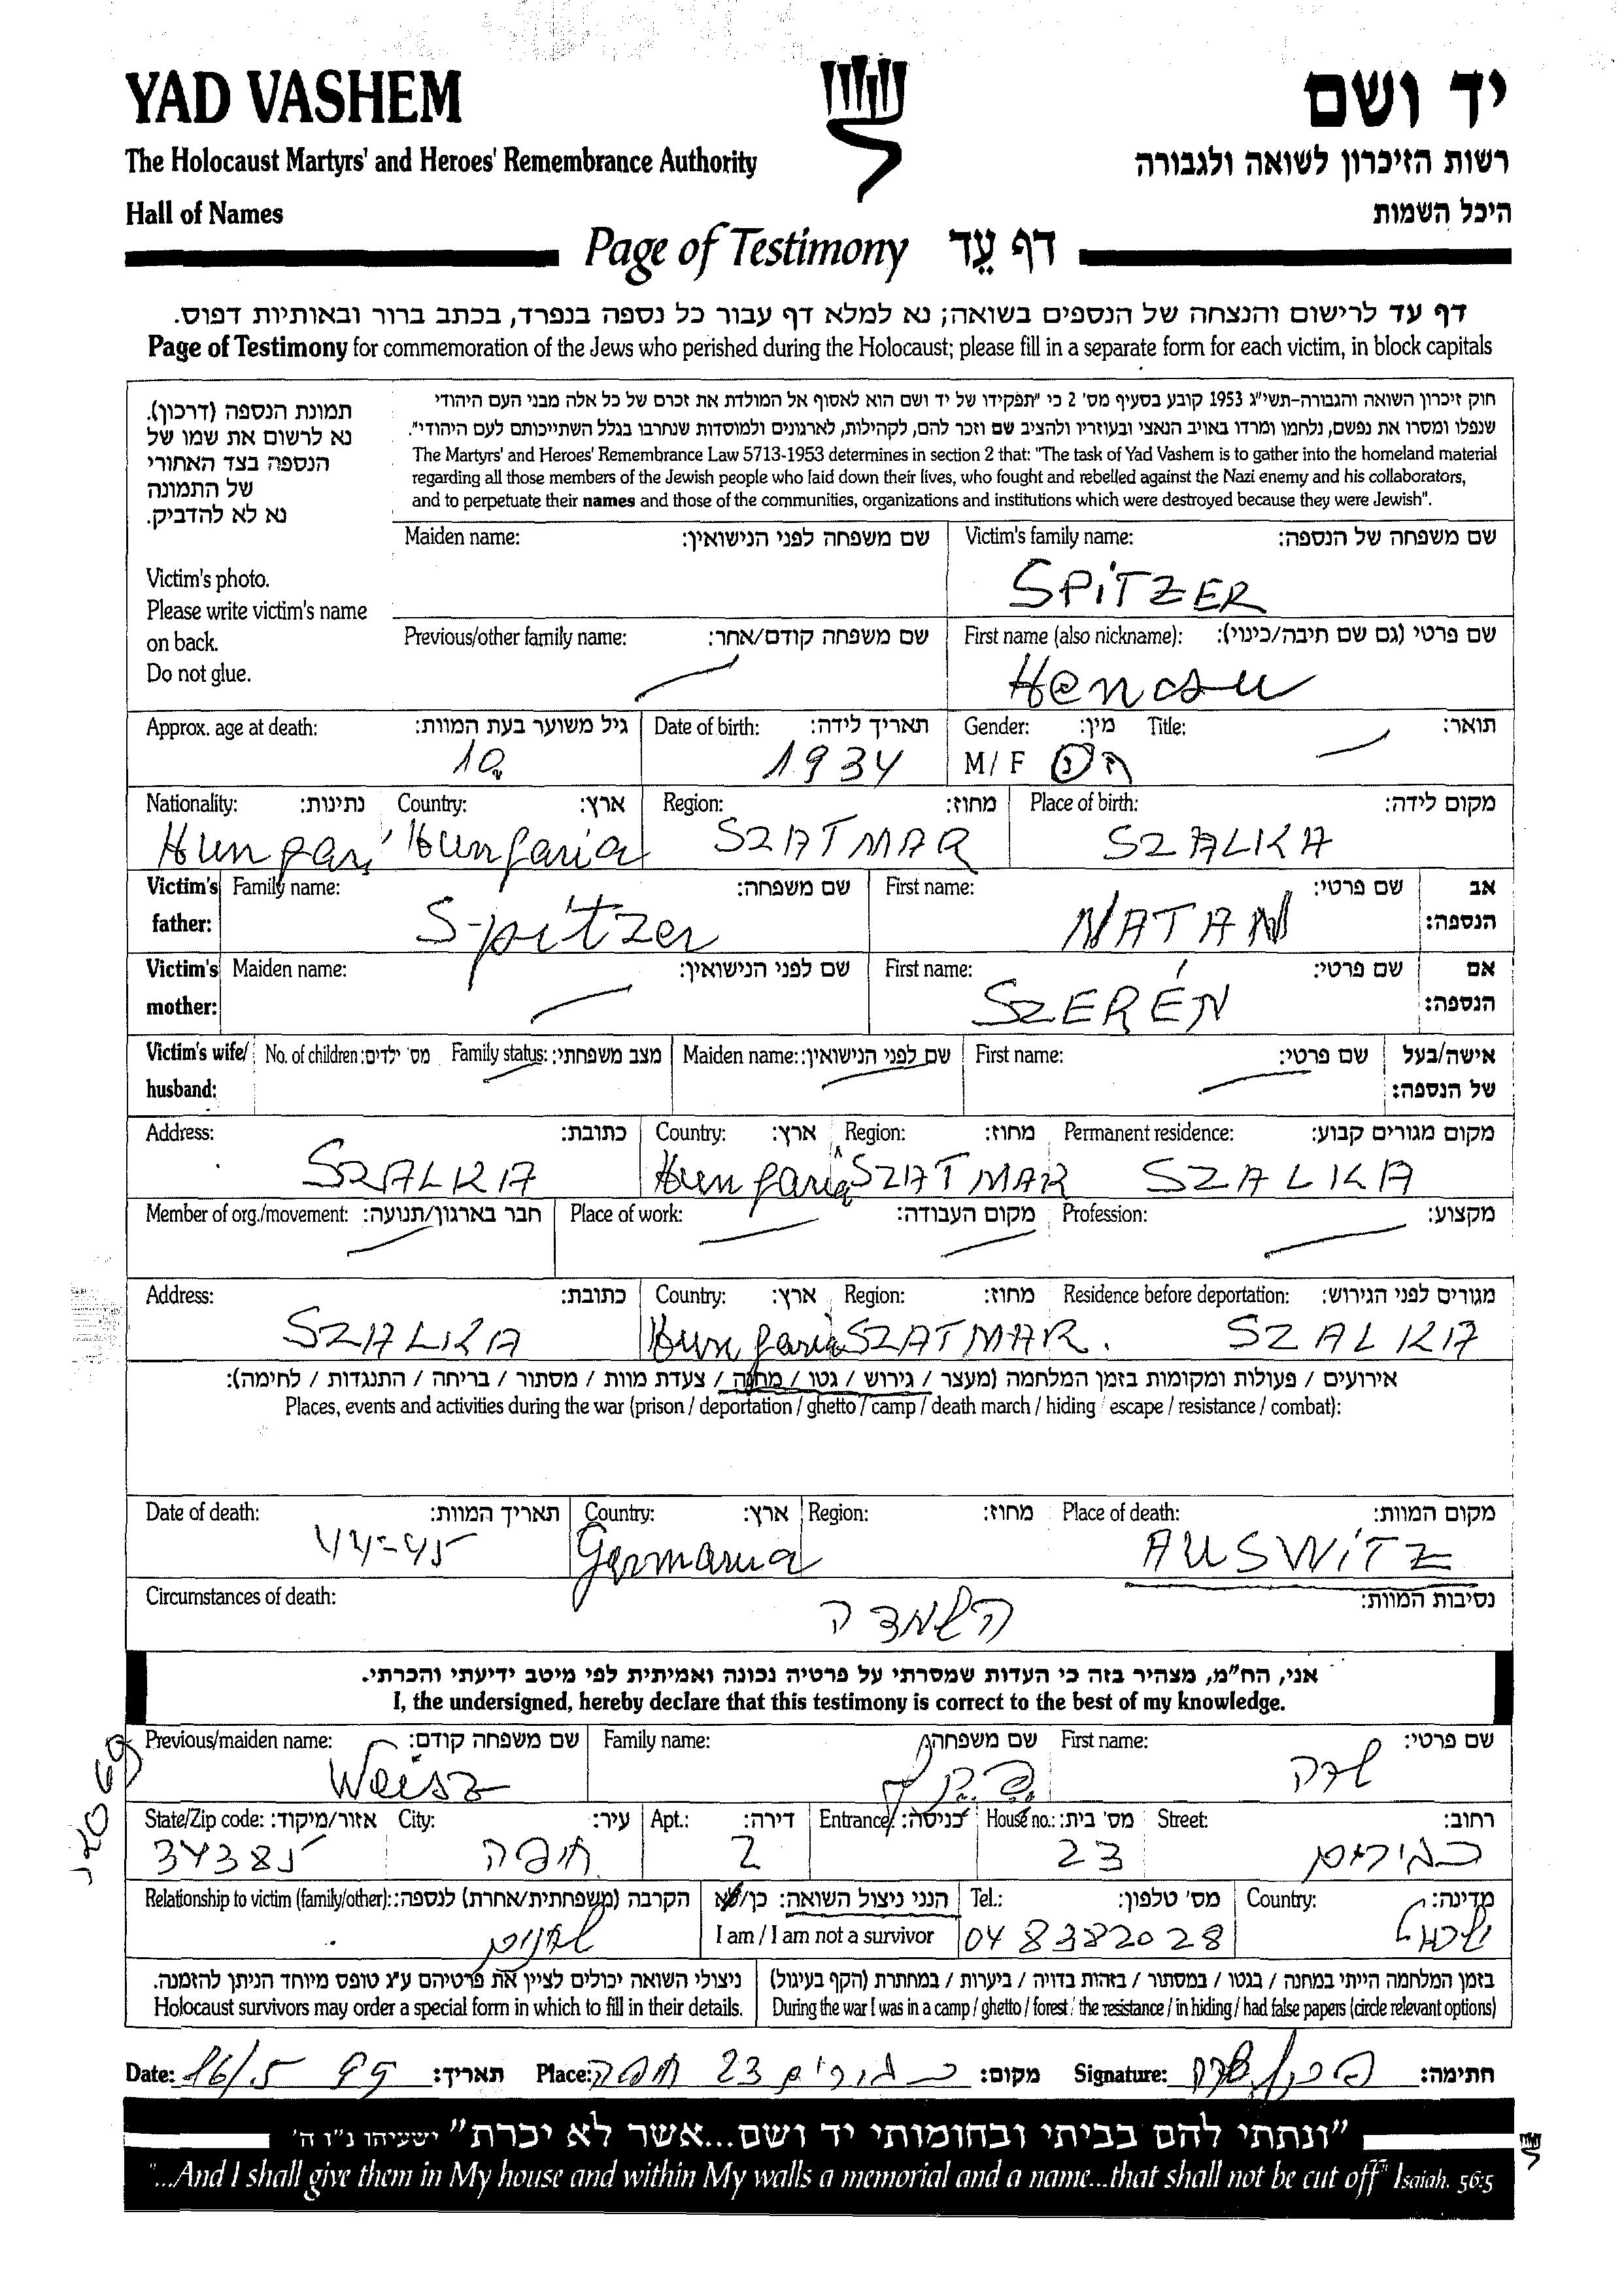 YAD VASHEM
יד ושם
The Holocaust Martyrs' and Heroes' Remembrance Authority
רשות הזיכרון לשואה ולגבורה
Hall of Names
היכל השמות
Page of Testimony דף עֵד
דף עד לרישום והנצחה של הנספים בשואה; נא למלא דף עבור כל נספה בנפרד, בכתב ברור ובאותיות דפוס.
Page of Testimony for commemoration of the Jews who perished during the Holocaust; please fill in a separate form for each victim, in block capitals
תמונת הנספה (דרכון).
נא לרשום את שמו של
הנספה בצד האחורי
של התמונה
נא לא להדביק.
Victim's photo.
Please write victim's name
on back.
Do not glue.
חוק זיכרון השואה והגבורה-תשי"ג 1953 קובע בסעיף מס' 2 כי "תפקידו של יד ושם הוא לאסוף אל המולדת את זכרם של כל אלה מבני העם היהודי
שנפלו ומסרו את נפשם, נלחמו ומרדו באויב הנאצי ובעוזריו ולהציב שם וזכר להם, לקהילות, לארגונים ולמוסדות שנחרבו בגלל השתייכותם לעם היהודי".
The Martyrs' and Heroes' Remembrance Law 5713-1953 determines in section 2 that: "The task of Yad Vashem is to gather into the homeland material
regarding all those members of the Jewish people who laid down their lives, who fought and rebelled against the Nazi enemy and his collaborators,
and to perpetuate their names and those of the communities, organizations and institutions which were destroyed because they were Jewish".
Maiden name: שם משפחה לפני הנישואין: Victim's family name: שם משפחה של הנספה:
SPITZER
Previous/other family name: שם משפחה קודם/אחר: First name (also nickname): שם פרטי (גם שם חיבה/כינוי):
Hencsu
Approx. age at death: גיל משוער בעת המוות: Date of birth: תאריך לידה: Gender: מין: Title: תואר:
10 1934 M/F ז נ
Nationality: נתינות: Country: ארץ: Region: מחוז: Place of birth: מקום לידה:
Hungari Hungaria SZATMAR SZALKA
Victim's father: Family name: שם משפחה: First name: שם פרטי: אב הנספה:
Spitzer NATAN
Victim's mother: Maiden name: שם לפני הנישואין: First name: שם פרטי: אם הנספה:
SZERÉN
Victim's wife/ husband: No. of children: מס' ילדים: Family status: מצב משפחתי: Maiden name: שם לפני הנישואין: First name: שם פרטי: אישה/בעל של הנספה:
Address: כתובת: Country: ארץ: Region: מחוז: Permanent residence: מקום מגורים קבוע:
SZALKA Hungaria SZATMAR SZALKA
Member of org./movement: חבר בארגון/תנועה: Place of work: מקום העבודה: Profession: מקצוע:
Address: כתובת: Country: ארץ: Region: מחוז: Residence before deportation: מגורים לפני הגירוש:
SZALKA Hungaria SZATMAR. SZALKA
אירועים / פעולות ומקומות בזמן המלחמה (מעצר / גירוש / גטו / מחנה / צעדת מוות / מסתור / בריחה / התנגדות / לחימה):
Places, events and activities during the war (prison / deportation / ghetto / camp / death march / hiding / escape / resistance / combat):
Date of death: תאריך המוות: Country: ארץ: Region: מחוז: Place of death: מקום המוות:
44-45 Germania AUSWITZ
Circumstances of death: נסיבות המוות:
השמדה
אני, הח"מ, מצהיר בזה כי העדות שמסרתי על פרטיה נכונה ואמיתית לפי מיטב ידיעתי והכרתי.
I, the undersigned, hereby declare that this testimony is correct to the best of my knowledge.
Previous/maiden name: שם משפחה קודם: Family name: שם משפחה: First name: שם פרטי:
Weisz שרה
State/Zip code: אזור/מיקוד: City: עיר: Apt.: דירה: Entrance: כניסה: House no.: מס' בית: Street: רחוב:
34385 חיפה 2 23 כ גיבורים
Relationship to victim (family/other): הקרבה (משפחתית/אחרת) לנספה: הנני ניצול השואה: כן/לא Tel.: מס' טלפון: Country: מדינה:
שכנים I am / I am not a survivor 04 8382028 ישראל
ניצולי השואה יכולים לציין את פרטיהם ע"ג טופס מיוחד הניתן להזמנה.
Holocaust survivors may order a special form in which to fill in their details.
בזמן המלחמה הייתי במחנה / בגטו / במסתור / בזהות בדויה / ביערות / במחתרת (הקף בעיגול)
During the war I was in a camp / ghetto / forest / the resistance / in hiding / had false papers (circle relevant options)
Date: 16/5 99 תאריך: Place: גיבורים 23 חיפה מקום: Signature: שרה חתימה:
"ונתתי להם בביתי ובחומותי יד ושם...אשר לא יכרת" ישעיהו נ"ו ה'
"...And I shall give them in My house and within My walls a memorial and a name...that shall not be cut off" Isaiah. 56:5